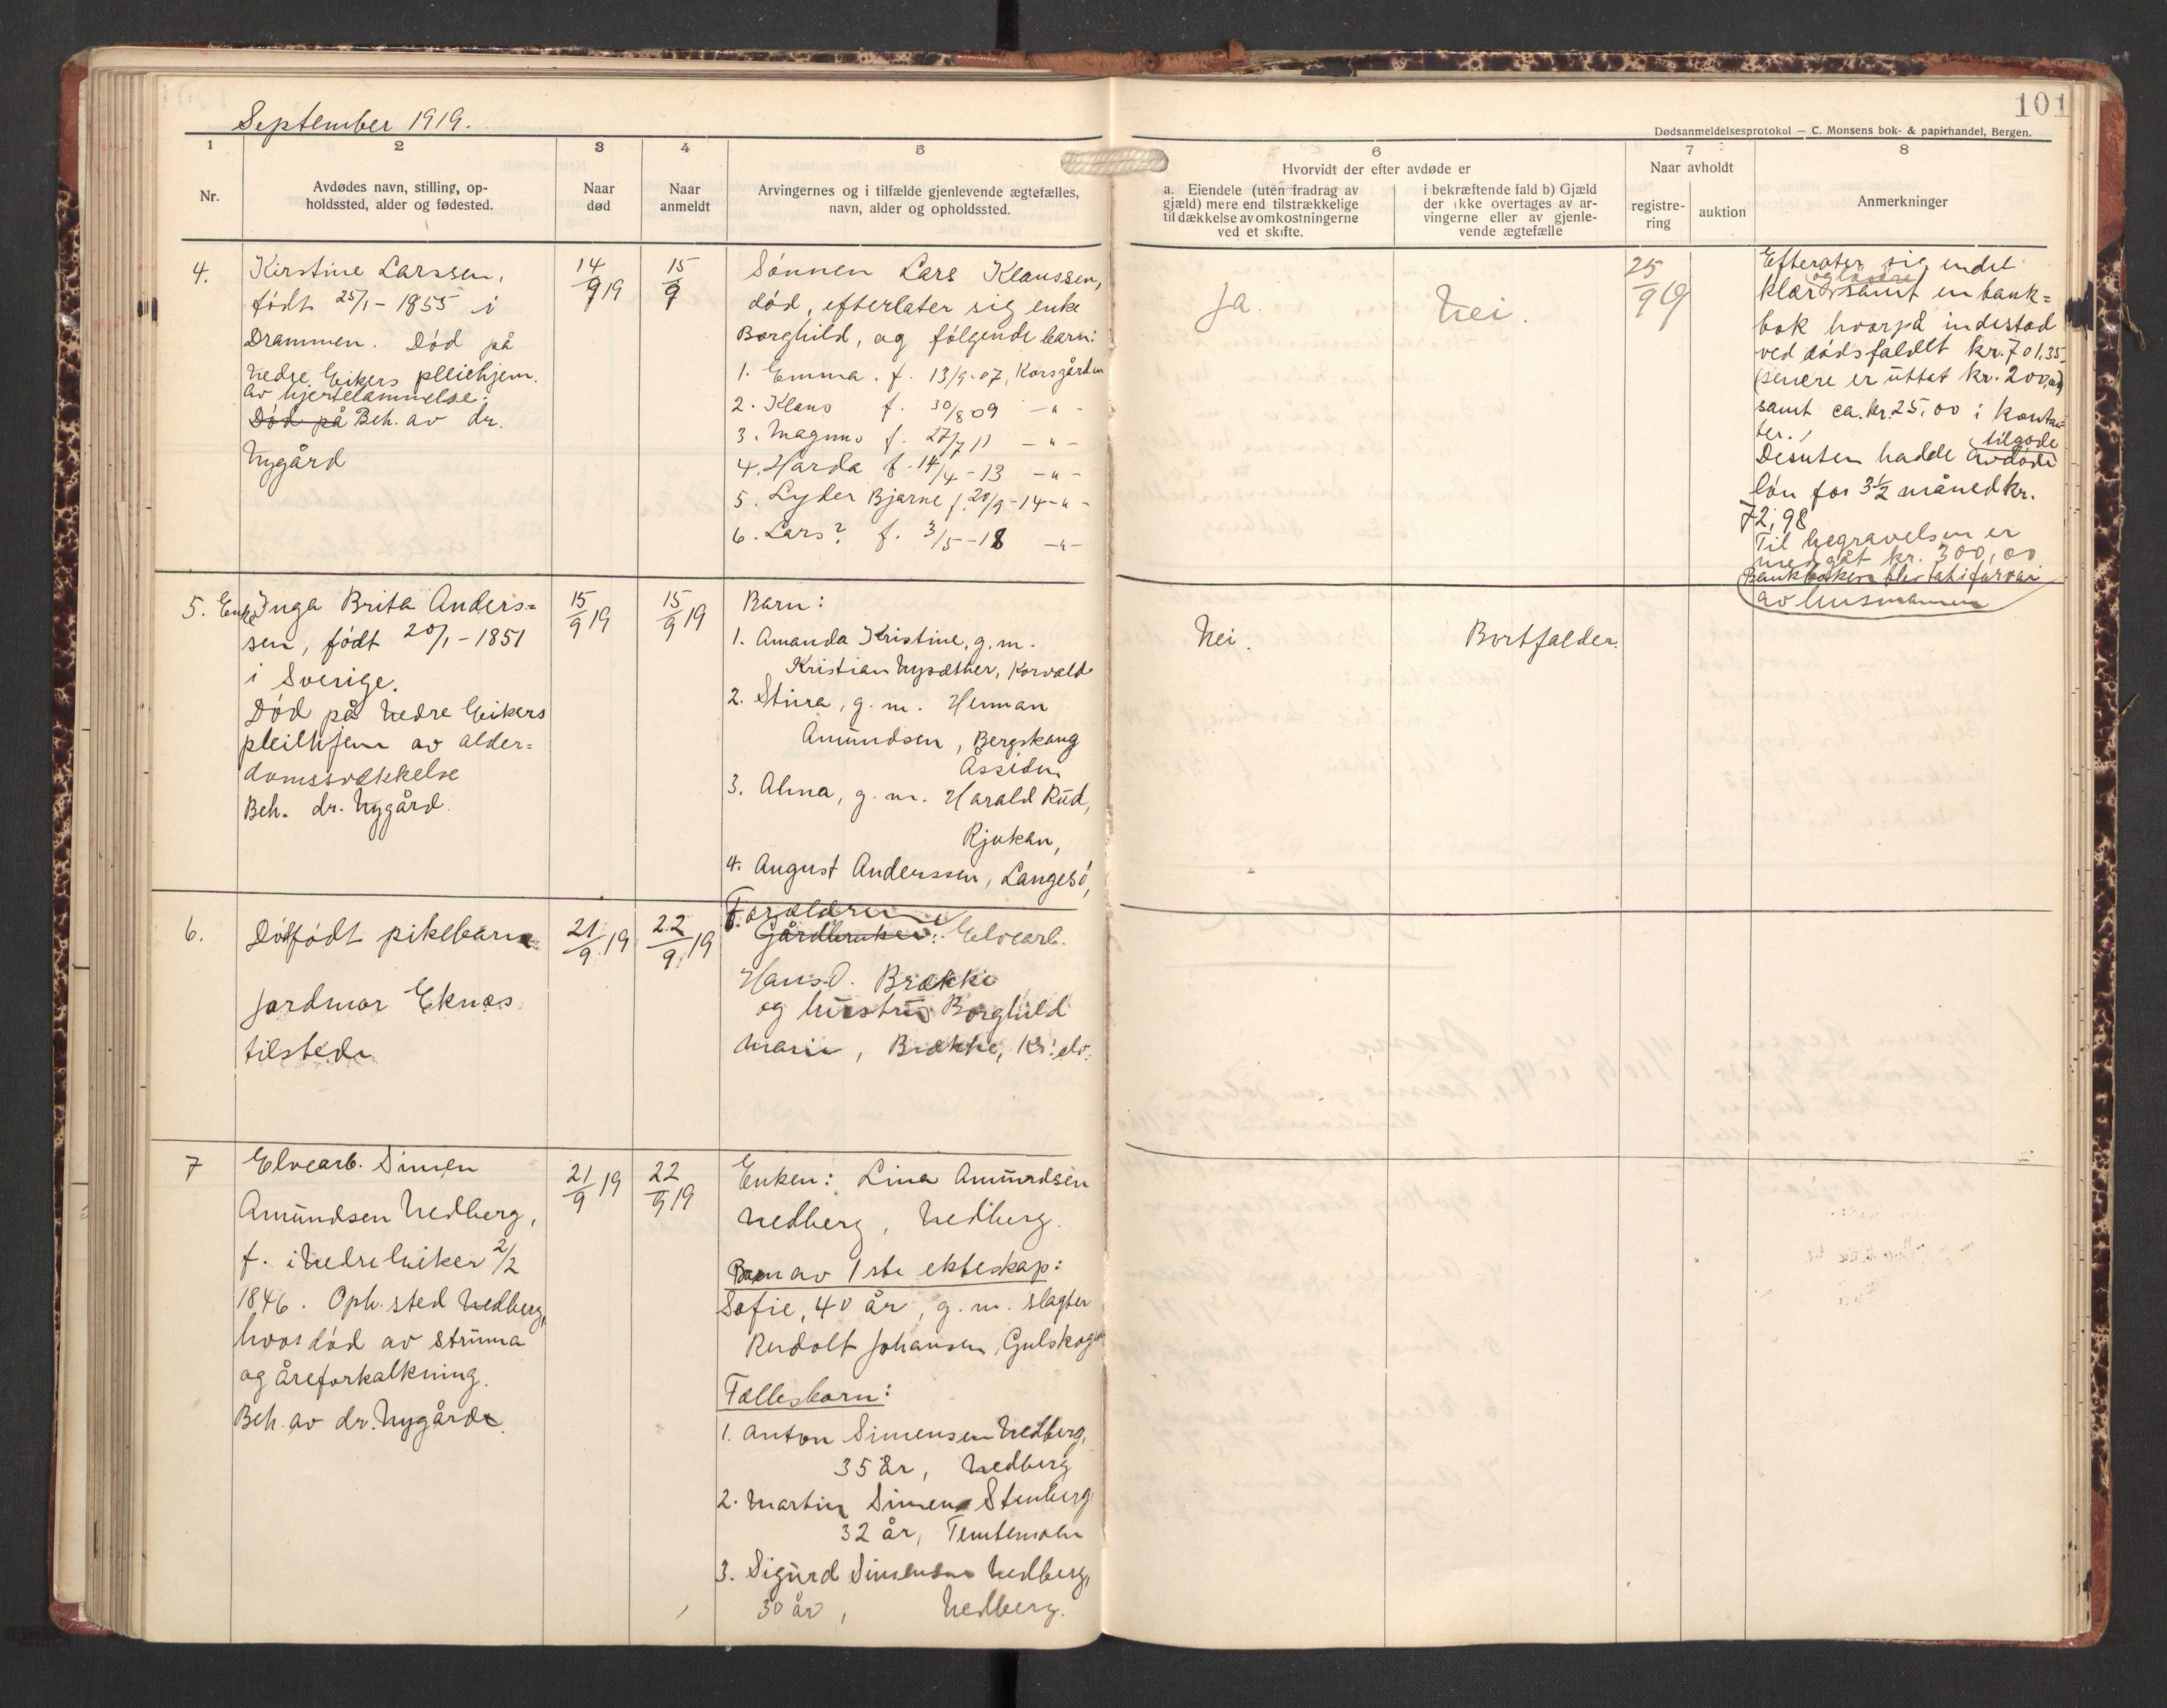 September 1919.
101
Dødsanmeldelsesprotokol — C. Monsens bok- & papirhandel, Bergen.
1
2
3
4
5
6
7
8
Nr.
Avdødes navn, stilling, op-
holdssted, alder og fødested.
Naar
død
Naar
anmeldt
Arvingernes og i tilfælde gjenlevende ægtefælles,
navn, alder og opholdssted.
Hvorvidt der efter avdøde er
a. Eiendele (uten fradrag av
gjæld) mere end tilstrækkelige
til dækkelse av omkostningerne
ved et skifte.
i bekræftende fald b) Gjæld
der ikke overtages av ar-
vingerne eller av gjenle-
vende ægtefælle
Naar avholdt
registre-
ring
auktion
Anmerkninger
4.
Kirstine Larssen,
født 25/1 - 1855 i
Drammen. Død på
Nedre Eikers pleiehjem.
av hjertelammelse.
Død på Beh. av dr.
Nygård
14/9 19
15/9
Sønnen Lars Klaussen,
død, efterlater sig enke
Borghild, og følgende barn:
1. Emma. f. 13/9-07, Korsgården
2. Klaus f. 30/8 09 -"-
3. Magnus f. 27/7 11 -"-
4. Harda f. 14/4-13 -"-
5. Lyder Bjarne f. 20/9-14 -"-
6. Lars? f. 3/5-18 -"-
Ja.
Nei.
25/9 19
Efterater sig endel
og løsøre
klær samt en bank=
bok hvorpå indestod
ved dødsfaldet kr. 701,35
(senere er uttat kr. 200,00)
samt ca. kr. 25,00 i kontan=
ter.
tilgode
Desuten hadde avdøde
løn for 3½ måned kr.
72,98
Til begravelsen er
medgåt kr. 300,00
Bankboken blev tat i forvar
av lensmannen
5.
Enke Inga Brita Anders=
sen, født 20/1 - 1851
i Sverige.
Død på Nedre Eikers
pleiehjem av alder=
domssvækkelse
Beh. dr. Nygård.
15/9 19
15/9 19
Barn:
1. Amanda Kristine, g. m.
Kristian Nysæther, Korvald
2. Stina, g. m. Herman
Amundsen, Bergskaug
Åssiden
3. Alma, g. m. Harald Rud,
Rjukan,
4. August Anderssen, Langesø,
Nei.
Bortfalder.
6.
Dødfødt pikebarn
Jordmor Eknæs
tilstede
21/9 19
22/9 19
Forældre
Gårdbruker: Elvearb.
Hans O. Brække
og hustru Borghild
Marie, Brække, Kr. elv.
7
Elvearb. Simen
Amundsen Nedberg,
f. i Nedre Eiker 2/2
1846. Oph. sted Nedberg,
hvor død av struma
og åreforkalkning.
Beh. av dr. Nygård.
21/9 19
22/9 19
Enken: Lina Amundsen
Nedberg, Nedberg.
Barn av 1ste ekteskap:
Sofie, 40 år, g. m. slagter
Rudolf Johansen, Gulskogen
Fællesbarn:
1. Anton Simensen Nedberg,
35 år, Nedberg
2. Martin Simens Stenberg
32 år, Temtemoen
3. Sigurd Simensen Nedberg,
30 år, Nedberg.